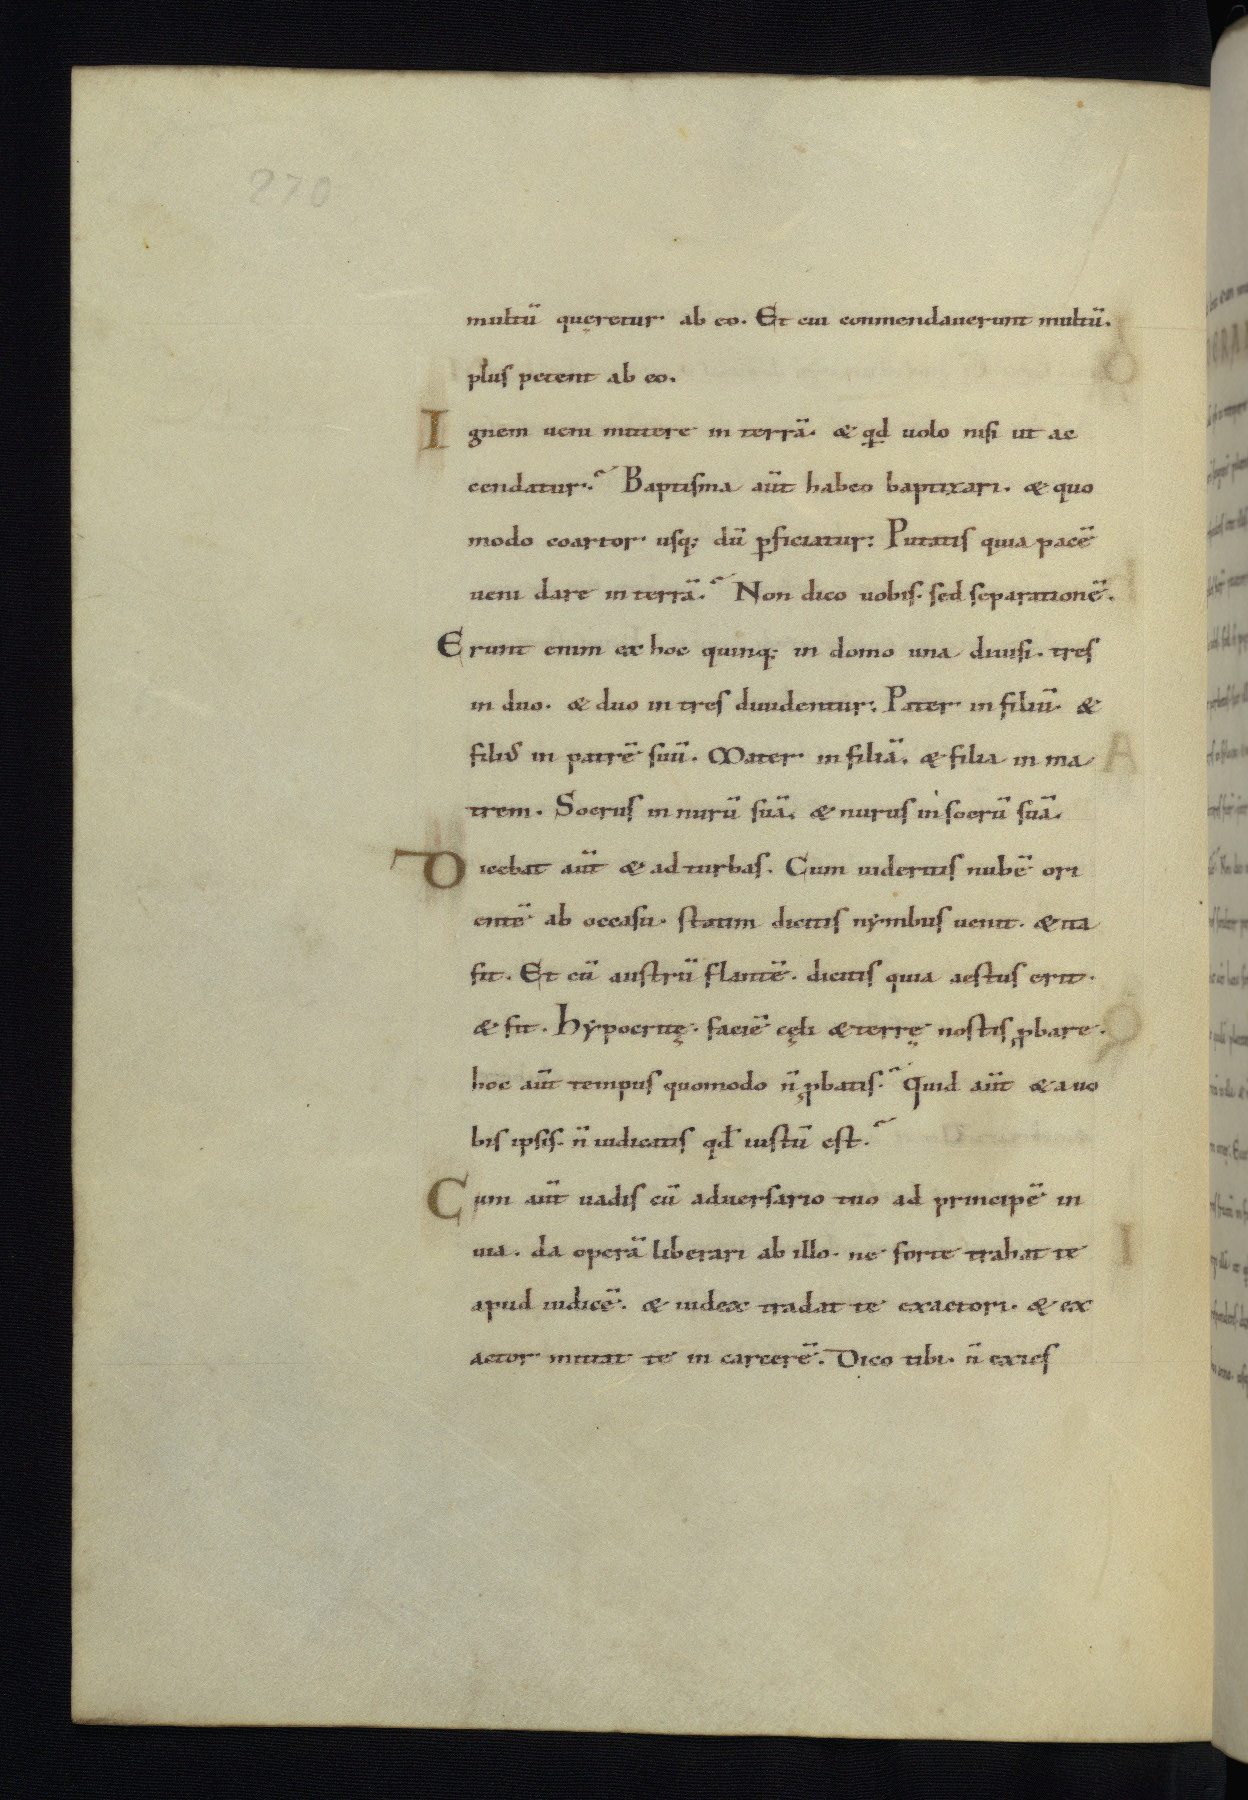 270
multū quęretur ab eo. Et cui conmendauerunt multū.
plus petent ab eo.
Ignem ueni mittere in terrā. & qđ uolo nisi ut ac
cendatur? Baptisma aūt habeo baptixari. & quo
modo coartor usq; dū ꝑficiatur: Putatis quia pacē
ueni dare in terrā? Non dico uobis. sed separationē.
Erunt enim ex hoc quinq; in domo una diuisi. tres
in duo. & duo in tres diuidentur: Pater in filiū. &
filiꝰ in patrē suū. Mater in filiā. & filia in ma
trem. Socrus in nurū suā. & nurus in socrū suā.
Dicebat aūt & ad turbas. Cum uideritis nubē ori
entē ab occasu. statim dicitis nẏmbus uenit. & ita
fit. Et cū austrū flantē. dicitis quia aestus erit.
& fit. Hẏpocritę. faciē cęli & terrę nostis ꝓbare.
hoc aūt tempus quomodo n̄ ꝓbatis? Quid aūt & a uo
bis ipsis. n̄ iudicatis qđ iustū est?
Cum aūt uadis cū aduersario tuo ad principē in
uia. da operā liberari ab illo. ne forte trahat te
apud iudicē. & iudex tradat te exactori. & ex
actor mittat te in carcerē. Dico tibi. n̄ exies